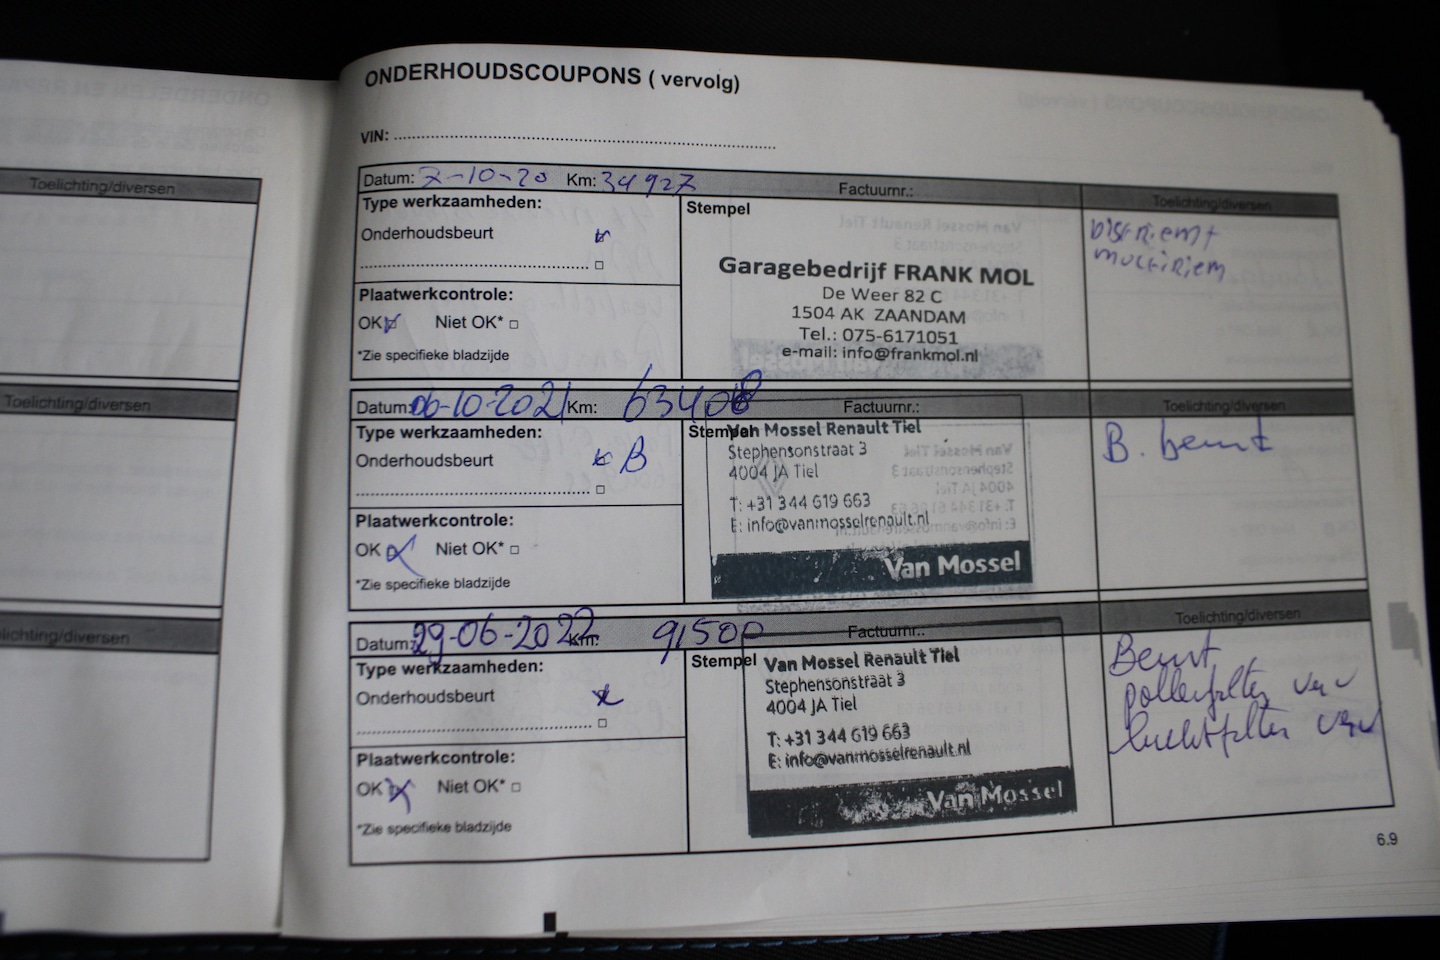 ONDERHOUDSCOUPONS ( vervolg)
VIN:
Toelichting/diversen
Datum: 7-10-20 Km: 34927 Factuurnr.: Toelichting/diversen
Type werkzaamheden: Stempel
Onderhoudsbeurt
Garagebedrijf FRANK MOL
De Weer 82 C
1504 AK ZAANDAM
Tel.: 075-6171051
e-mail: info@frankmol.nl
DISRIEM+
MULTIRIEM
Plaatwerkcontrole:
OK Niet OK*
*Zie specifieke bladzijde
Toelichting/diversen
Datum: 06-10-2021 Km: 63408 Factuurnr.: Toelichting/diversen
Type werkzaamheden: Stempel
Onderhoudsbeurt B
Van Mossel Renault Tiel
Stephensonstraat 3
4004 JA Tiel
T: +31 344 619 663
E: info@vanmosselrenault.nl
Van Mossel
B. beurt
Plaatwerkcontrole:
OK Niet OK*
*Zie specifieke bladzijde
lichting/diversen
Datum: 29-06-2022 Km: 91500 Factuurnr.: Toelichting/diversen
Type werkzaamheden: Stempel
Onderhoudsbeurt
Van Mossel Renault Tiel
Stephensonstraat 3
4004 JA Tiel
T: +31 344 619 663
E: info@vanmosselrenault.nl
Van Mossel
Beurt
pollenfilter verv
luchtfilter verv
Plaatwerkcontrole:
OK Niet OK*
*Zie specifieke bladzijde
6.9